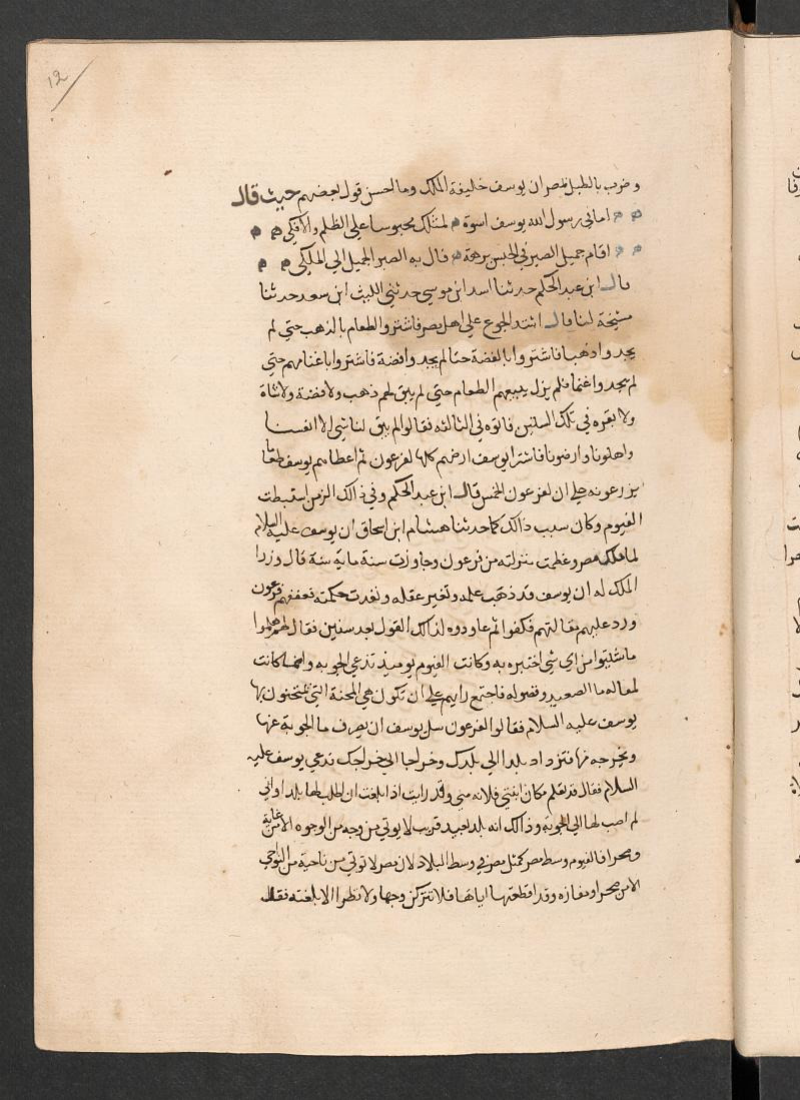 12
وضرب بالطبل بمصر ان يوسف خليفة الملك وما احسن قول بعضهم حيث قال
اما في رسول الله يوسف اسوة لمثلك محبوسا على الظلم والافكي
اقام جميل الصبر في الحبس برهة فال به الصبر الجميل الى الملكي
قال ابن عبد الحكم حدثنا اسد ابن موسى حدثني الليث ابن سعد حدثنا
مشيخة لنا قال اشتد الجوع على اهل مصر فاشتروا الطعام بالذهب حتى لم
يجدوا ذهبا فاشتروا بالفضة حتا لم يجدوا فضة فاشتروا باغنامهم حتى
لم يجدوا غنما فلم يزل يبيعهم الطعام حتى لم يبق لهم ذهب ولا فضة ولا شاة
ولا بقره في تلك السنتين فاتوه في الثالثه فقالوا لم يبق لنا شي الا انفسنا
واهلونا وارضونا فاشترا يوسف ارضهم كلها لفرعون ثم اعطاهم يوسف طعاما
يزرعونه على ان لفرعون الخمس قال ابن عبد الحكم وفي ذالك الزمن استبطت
الفيوم وكان سبب ذالك كما حدثنا هشام ابن اسحاق ان يوسف عليه السلام
لما ملك مصر وعظمت منزلته من فرعون وجاوزت سنة ماية سنة قال وزرا
الملك له ان يوسف قد ذهب علمه وتغير عقله ونفدت حكمته فعنفهم فرعون
ورد عليهم مقالتهم فكفوا ثم عاودوه لذالك القول بعد سنين فقال لهم هلموا
ماشئتوا من اي شي اختبره به وكانت الفيوم يوميذ تدعى الجوبه وانما كانت
لمصالة ما الصعيد وفضوله فاجتمع رايهم على ان تكون هي المحنة التي يمتحنون بها
يوسف عليه السلام فقالوا لفرعون سل يوسف ان يصرف ما الجوبة عنها
ويخرجه منها فتزداد بلدا الى بلدك وخراجا الى خراجك فدعى يوسف عليه
السلام فقال قد تعلم مكان ابنتي فلانه مني وقد رايت اذا بلغت ان اطلب لها بلدا واني
لم اصب لها الى الجوبة وذالك انه بلد بعيد قريب لا يوتى من وجه من الوجوه الا من غابة
وصحرا فالفيوم وسط مصر كمثل مصر في وسط البلاد لان مصر لا توتى من ناحية من النواحي
الا من صحرا او مفازه وقد اقطعتها اياها فلا تتركن وجها ولا نظرا الا بلغته فقال